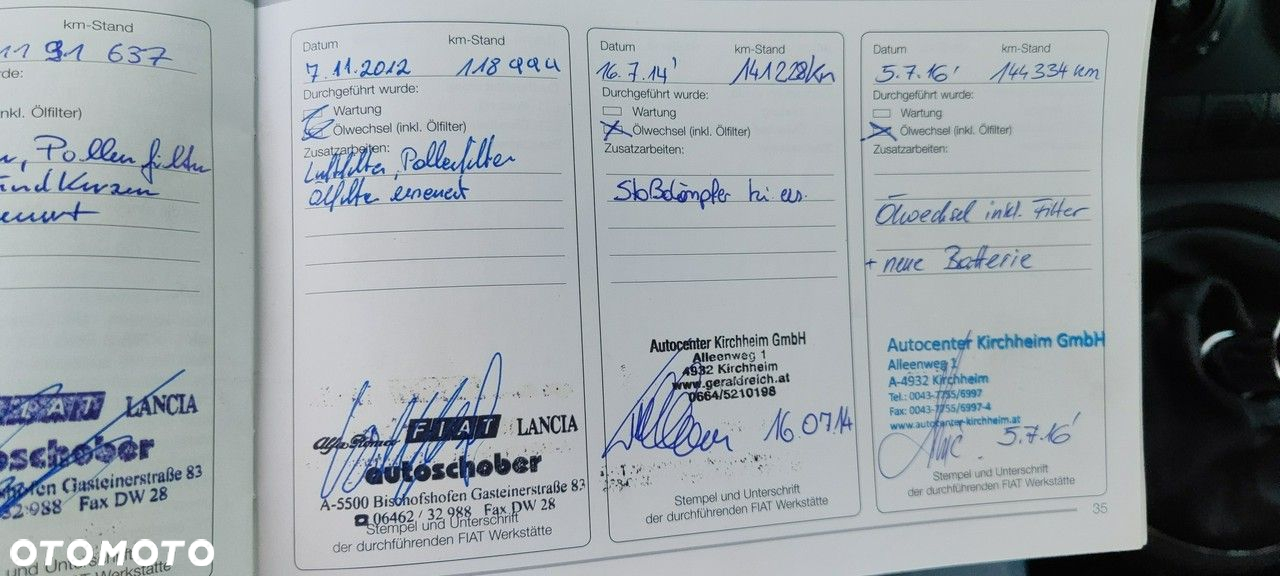 km-Stand
637
rde:
nkl. Ölfilter)
Pollenfilter
LANCIA
oschober
hofen Gasteinerstraße 83
32 988 Fax DW 28
und Unterschrift
FIAT Werkstätte
Datum km-Stand
7.11.2012 118 994
Durchgeführt wurde:
Wartung
Ölwechsel (inkl. Ölfilter)
Zusatzarbeiten:
Luftfilter, Pollenfilter
Ölfilter erneuert
Alfa Romeo FIAT LANCIA
autoschober
A-5500 Bischofshofen Gasteinerstraße 83
06462 / 32 988 Fax DW 28
Stempel und Unterschrift
der durchführenden FIAT Werkstätte
Datum km-Stand
16.7.14' 141228km
Durchgeführt wurde:
Wartung
Ölwechsel (inkl. Ölfilter)
Zusatzarbeiten:
Stoßdämpfer hi
Autocenter Kirchheim GmbH
Alleenweg 1
4932 Kirchheim
www.geraldreich.at
0664/5210198
16.07.14
Stempel und Unterschrift
der durchführenden FIAT Werkstätte
Datum km-Stand
5.7.16' 144334 km
Durchgeführt wurde:
Wartung
Ölwechsel (inkl. Ölfilter)
Zusatzarbeiten:
Ölwechsel inkl. Filter
+ neue Batterie
Autocenter Kirchheim GmbH
Alleenweg 1
A-4932 Kirchheim
Tel.: 0043-7755/6997
Fax: 0043-7755/6997-4
www.autocenter-kirchheim.at
5.7.16'
Stempel und Unterschrift
der durchführenden FIAT Werkstätte
35
OTOMOTO